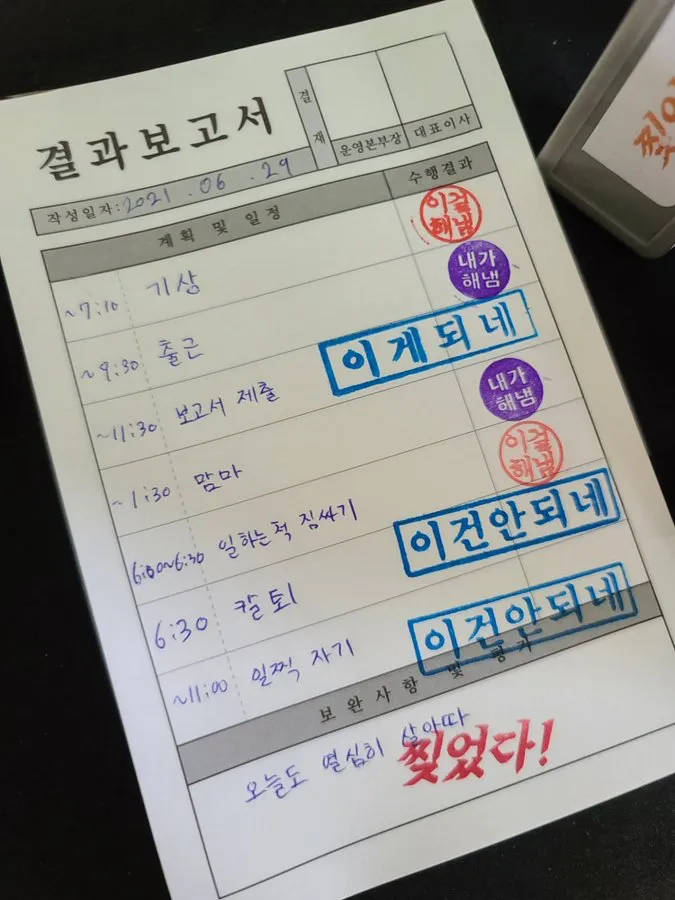 결과보고서
결재
운영본부장 대표이사
작성일자:2021.06.29
계획 및 일정 수행결과
~7:10 기상 이걸해냄
~9:30 출근 내가해냄
~11:30 보고서 제출 이게되네
~1:30 맘마 내가해냄
6:00~6:30 일하는척 짐싸기 이걸해냄
6:30 칼퇴 이건안되네
~11:00 일찍 자기 이건안되네
보완사항 및 평가
오늘도 열심히 살아따
찢었다!